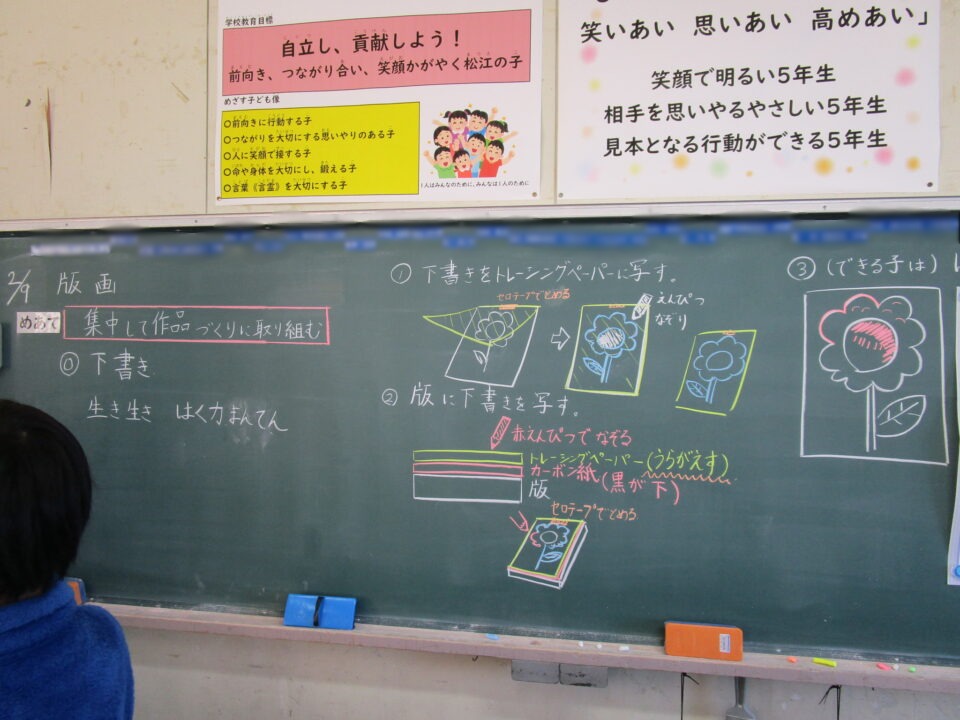 学校教育目標
自立し、貢献しよう！
前向き、つながり合い、笑顔かがやく松江の子
めざす子ども像
○前向きに行動する子
○つながりを大切にする思いやりのある子
○人に笑顔で接する子
○命や身体を大切にし、鍛える子
○言葉《言霊》を大切にする子
1人はみんなのために、みんなは1人のために
笑いあい 思いあい 高めあい」
笑顔で明るい5年生
相手を思いやるやさしい5年生
見本となる行動ができる5年生
2/9 版画
めあて 集中して作品づくりに取り組む
⓪ 下書き
生き生き はく力まんてん
① 下書きをトレーシングペーパーに写す。
セロテープでとめる
えんぴつ
なぞり
② 版に下書きを写す。
赤えんぴつでなぞる
トレーシングペーパー(うらがえす)
カーボン紙(黒が下)
版
セロテープでとめる
③ (できる子は)